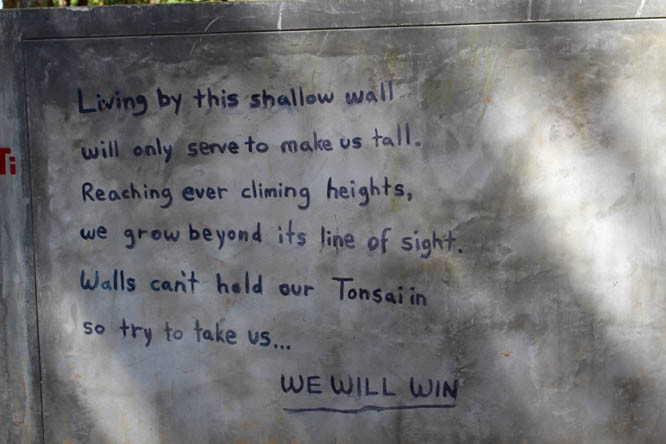 Living by this shallow wall
will only serve to make us tall.
Reaching ever climing heights,
we grow beyond its line of sight.
Walls can't hold our Tonsai in
so try to take us...
WE WILL WIN
Ti